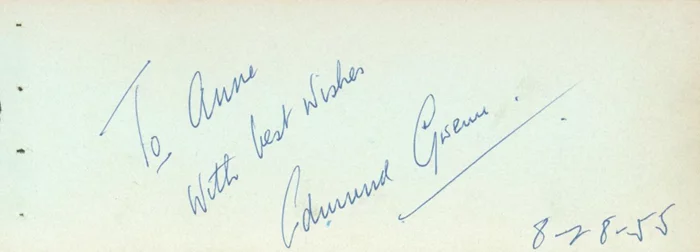 To Anne
With best wishes
Edmund Gwenn.
8-28-55